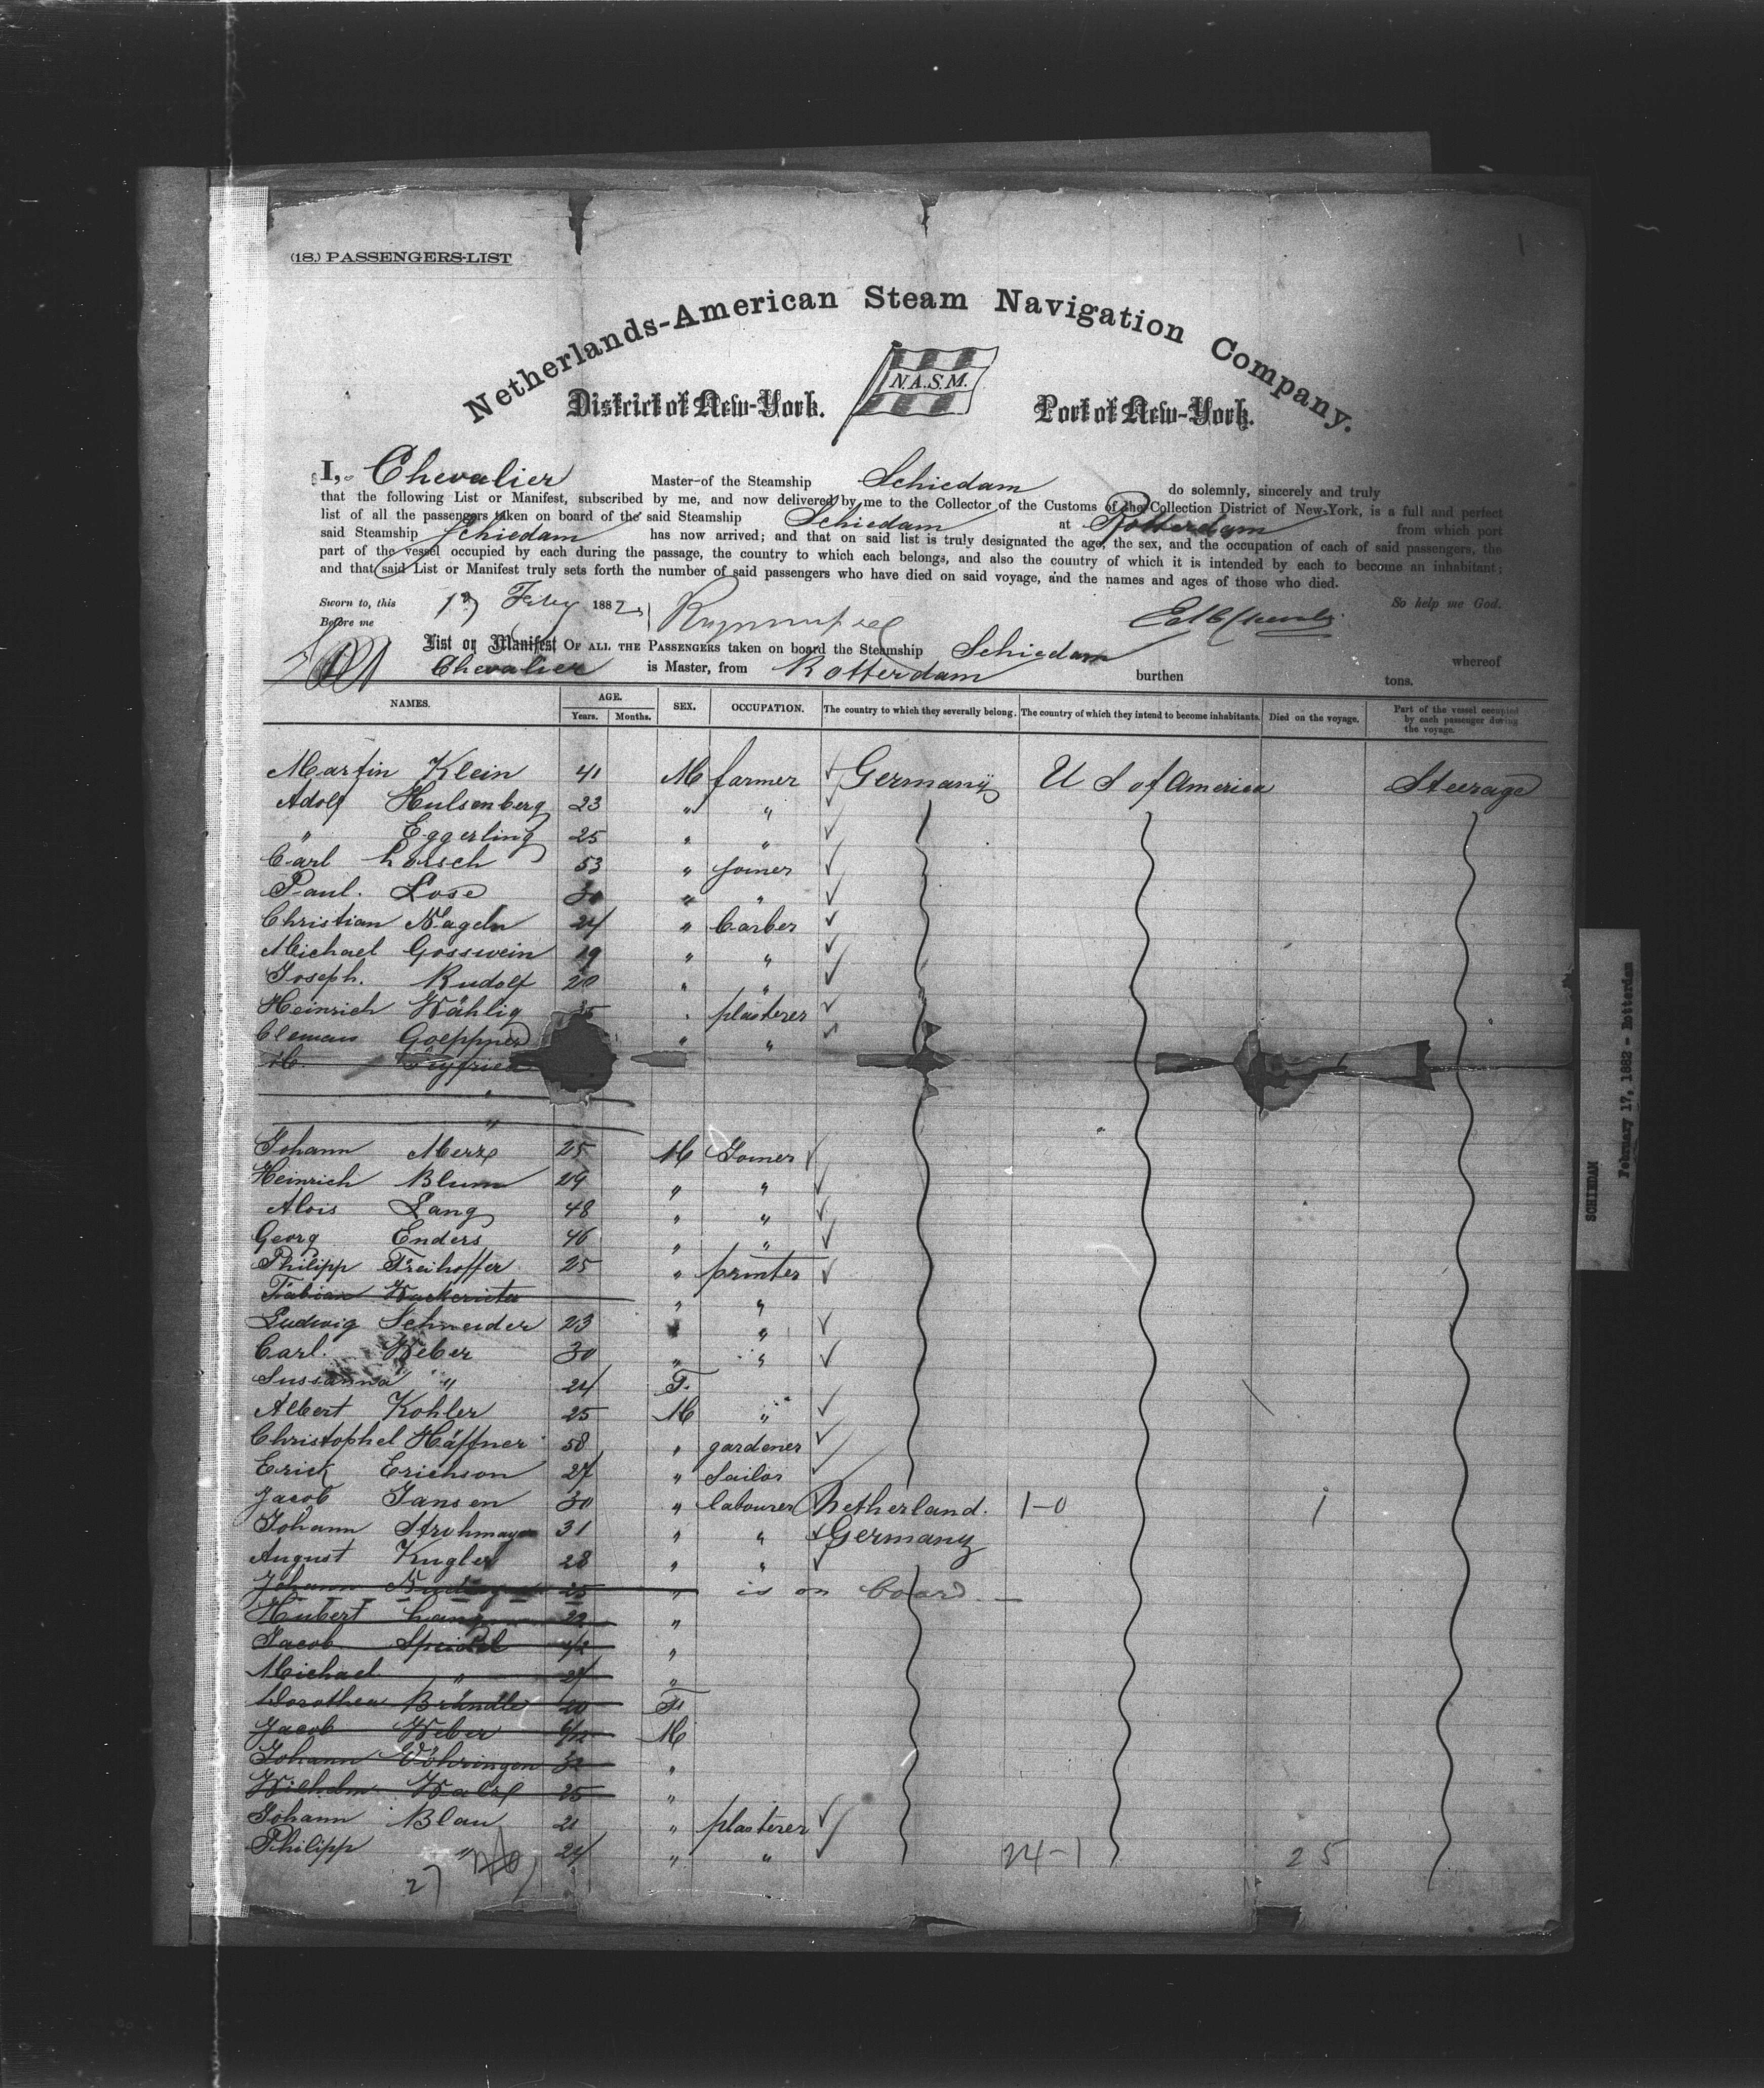 (18.) PASSENGERS-LIST
Netherlands-American Steam Navigation Company.
N.A.S.M.
District of New-York. Port of New-York.
I, Chevalier Master of the Steamship Schiedam do solemnly, sincerely and truly
that the following List or Manifest, subscribed by me, and now delivered by me to the Collector of the Customs of the Collection District of New-York, is a full and perfect
list of all the passengers taken on board of the said Steamship Schiedam at Rotterdam from which port
said Steamship Schiedam has now arrived; and that on said list is truly designated the age, the sex, and the occupation of each of said passengers, the
part of the vessel occupied by each during the passage, the country to which each belongs, and also the country of which it is intended by each to become an inhabitant;
and that said List or Manifest truly sets forth the number of said passengers who have died on said voyage, and the names and ages of those who died.
Sworn to, this 17 Feby 1882 So help me God.
Before me
List or Manifest OF ALL THE PASSENGERS taken on board the Steamship Schiedam whereof
Chevalier is Master, from Rotterdam burthen tons.
NAMES. AGE. Years. Months. SEX. OCCUPATION. The country to which they severally belong. The country of which they intend to become inhabitants. Died on the voyage. Part of the vessel occupied by each passenger during the voyage.
Martin Klein 41 M farmer Germany U S of America Steerage
Adolf Hulsenberg 23 " "
" Eggerling 25 " "
Carl Lorsch 53 " joiner
Paul. Lose 30 " "
Christian Nageln 24 " barber
Michael Gosswein 19 " "
Joseph. Rudolf 20 " "
Heinrich Wählig 35 " plasterer
Clemens Goeppner " "
M.
"
"
Johann Merze 25 M Joiner
Heinrich Blum 29 " "
Alois Lang 48 " "
Georg Enders 46 " "
Philipp Freihoffer 25 " printer
Fabian " "
Ludwig Schneider 23 " "
Carl. Weber 30 " "
Sussanna " 24 F.
Albert Kohler 25 M "
Christophel Häffner 58 " gardener
Erick Erichson 27 " Sailor
Jacob Jansen 30 " labourer Netherland. 1-0 1
Johann Strohmayer 31 " " Germany
August Kugler 28 " "
Johann 25 " is on board.
Hubert Lang 22 "
Jacob Speidel "
Michael " 27 "
Dorothea Brändle 20 F.
Jacob Weber 6/12 M
Johann Vöhringen 32 "
Wilhelm Walz 25 "
Johann Blau 21 " plasterer
Philipp " 24 " "
27 24-1 25
SCHIEDAM
February 17, 1882 - Rotterdam